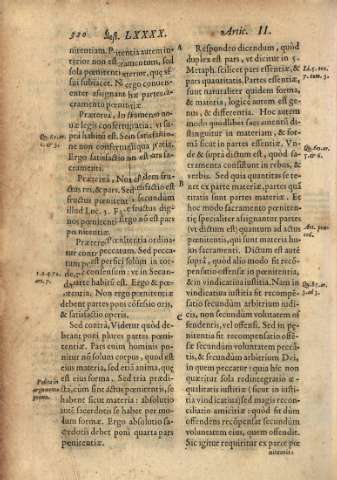 520 Quæst. LXXXX. Artic. II.
nitentiam. Pœnitentia autem in-
terior non est sacramentum, sed
sola pœnitentia exterior, quæ
subiacet. Ergo
enter assignant hæ partes sa-
cramento pœnitentiæ.
Præterea, In sacramento no-
uæ legis confertur gratia
habitum est. Sed in satisfactio-
ne non confertur gratia,
Ergo satisfactio non est pars sacra-
menti.
Præterea, Non est idem fru-
ctus rei, & pars. Sed satisfactio est
fructus pœnitentiæ, secundum
illud Luc. 3. Facite fructus dig-
nos pœnitentiæ. Ergo nō est pars
pœnitentiæ.
Præterea, Pœnitentia ordina-
tur contra peccatum. Sed pecca-
tum potest perfici solum in cor-
de per consensum: vt in Secun-
da parte habitū est. Ergo & pœ-
nitentia. Non ergo pœnitentiæ
debent partes poni cōfessio oris,
& satisfactio operis.
Sed contrà, Videtur quòd de-
beant poni plures partes pœni-
tentiæ. Pars enim hominis po-
nitur nō solum corpus, quod est
eius materia, sed etiā anima, quę
est eius forma. Sed tria prædi-
cta, cùm sint actus pœnitentis, se
habent sicut materia: absolutio
autē sacerdotis se habet per mo-
dum formæ. Ergo absolutio sa-
cerdotis debet poni quarta pars
pœnitentiæ.
Respondeo dicendum, quòd
duplex est pars, vt dicitur in 5.
Metaph. scilicet pars essentiæ, &
pars quantitatis. Partes essentiæ
sunt naturaliter quidem forma,
& materia, logicè autem est ge-
nus, & differentia. Hoc autem
modo quodlibet sacramentū di-
stinguitur in materiam, & for-
mā sicut in partes essentiæ. Vn-
de & suprà dictum est, quòd sa-
cramenta consistunt in rebus, &
verbis. Sed quia quantitas se te-
net ex parte materiæ, partes quā
titatis sunt partes materiæ. Et
hoc modo sacramento pœniten-
tię specialiter assignantur partes
(vt dictum est) quantum ad actus
pœnitentis, qui sunt materia hu-
ius sacramenti. Dictum est autē
suprà, quòd alio modo fit reco-
pensatio offensæ in pœnitentia,
& in vindicatiua iustitia. Nam in
vindicatiua iustitia fit recōpēsa-
tio secundum arbitrium iudi-
cis, non secundum voluntatem of
fendentis, vel offensi. Sed in pœ-
nitentia fit recompensatio offē-
sæ secundum voluntatem pecca-
tis, & secundum arbitrium Dei,
in quem peccatur: quia hîc non
quæritur sola redintegratio æ-
qualitatis iustitiæ: sicut in iusti-
tia vindicatiua, sed magis recon-
ciliatio amicitiæ: quod fit dùm
offendens recōpensat secundum
voluntatem eius, quem offendit.
Sic igitur requiritur ex parte pœ
nitentis
A
B
C